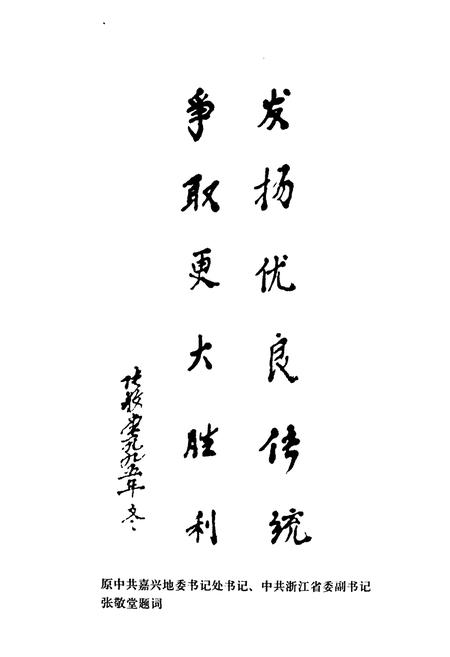 发扬优良传统
争取更大胜利
张敬堂一九九五年冬
原中共嘉兴地委书记处书记、中共浙江省委副书记
张敬堂题词